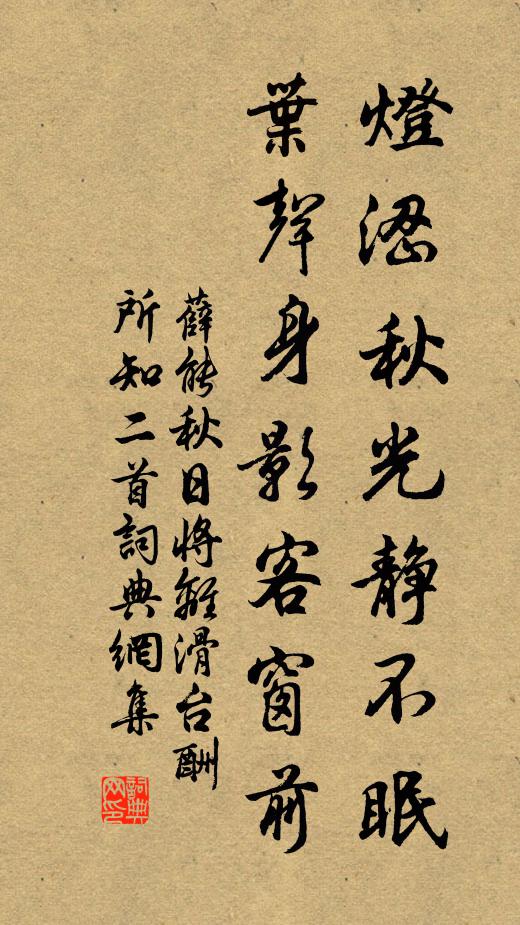 燈澀秋光靜不眠
葉聲身影客窗前
薛能秋日將離滑台酬
所知二首詞典網集
詞典網印